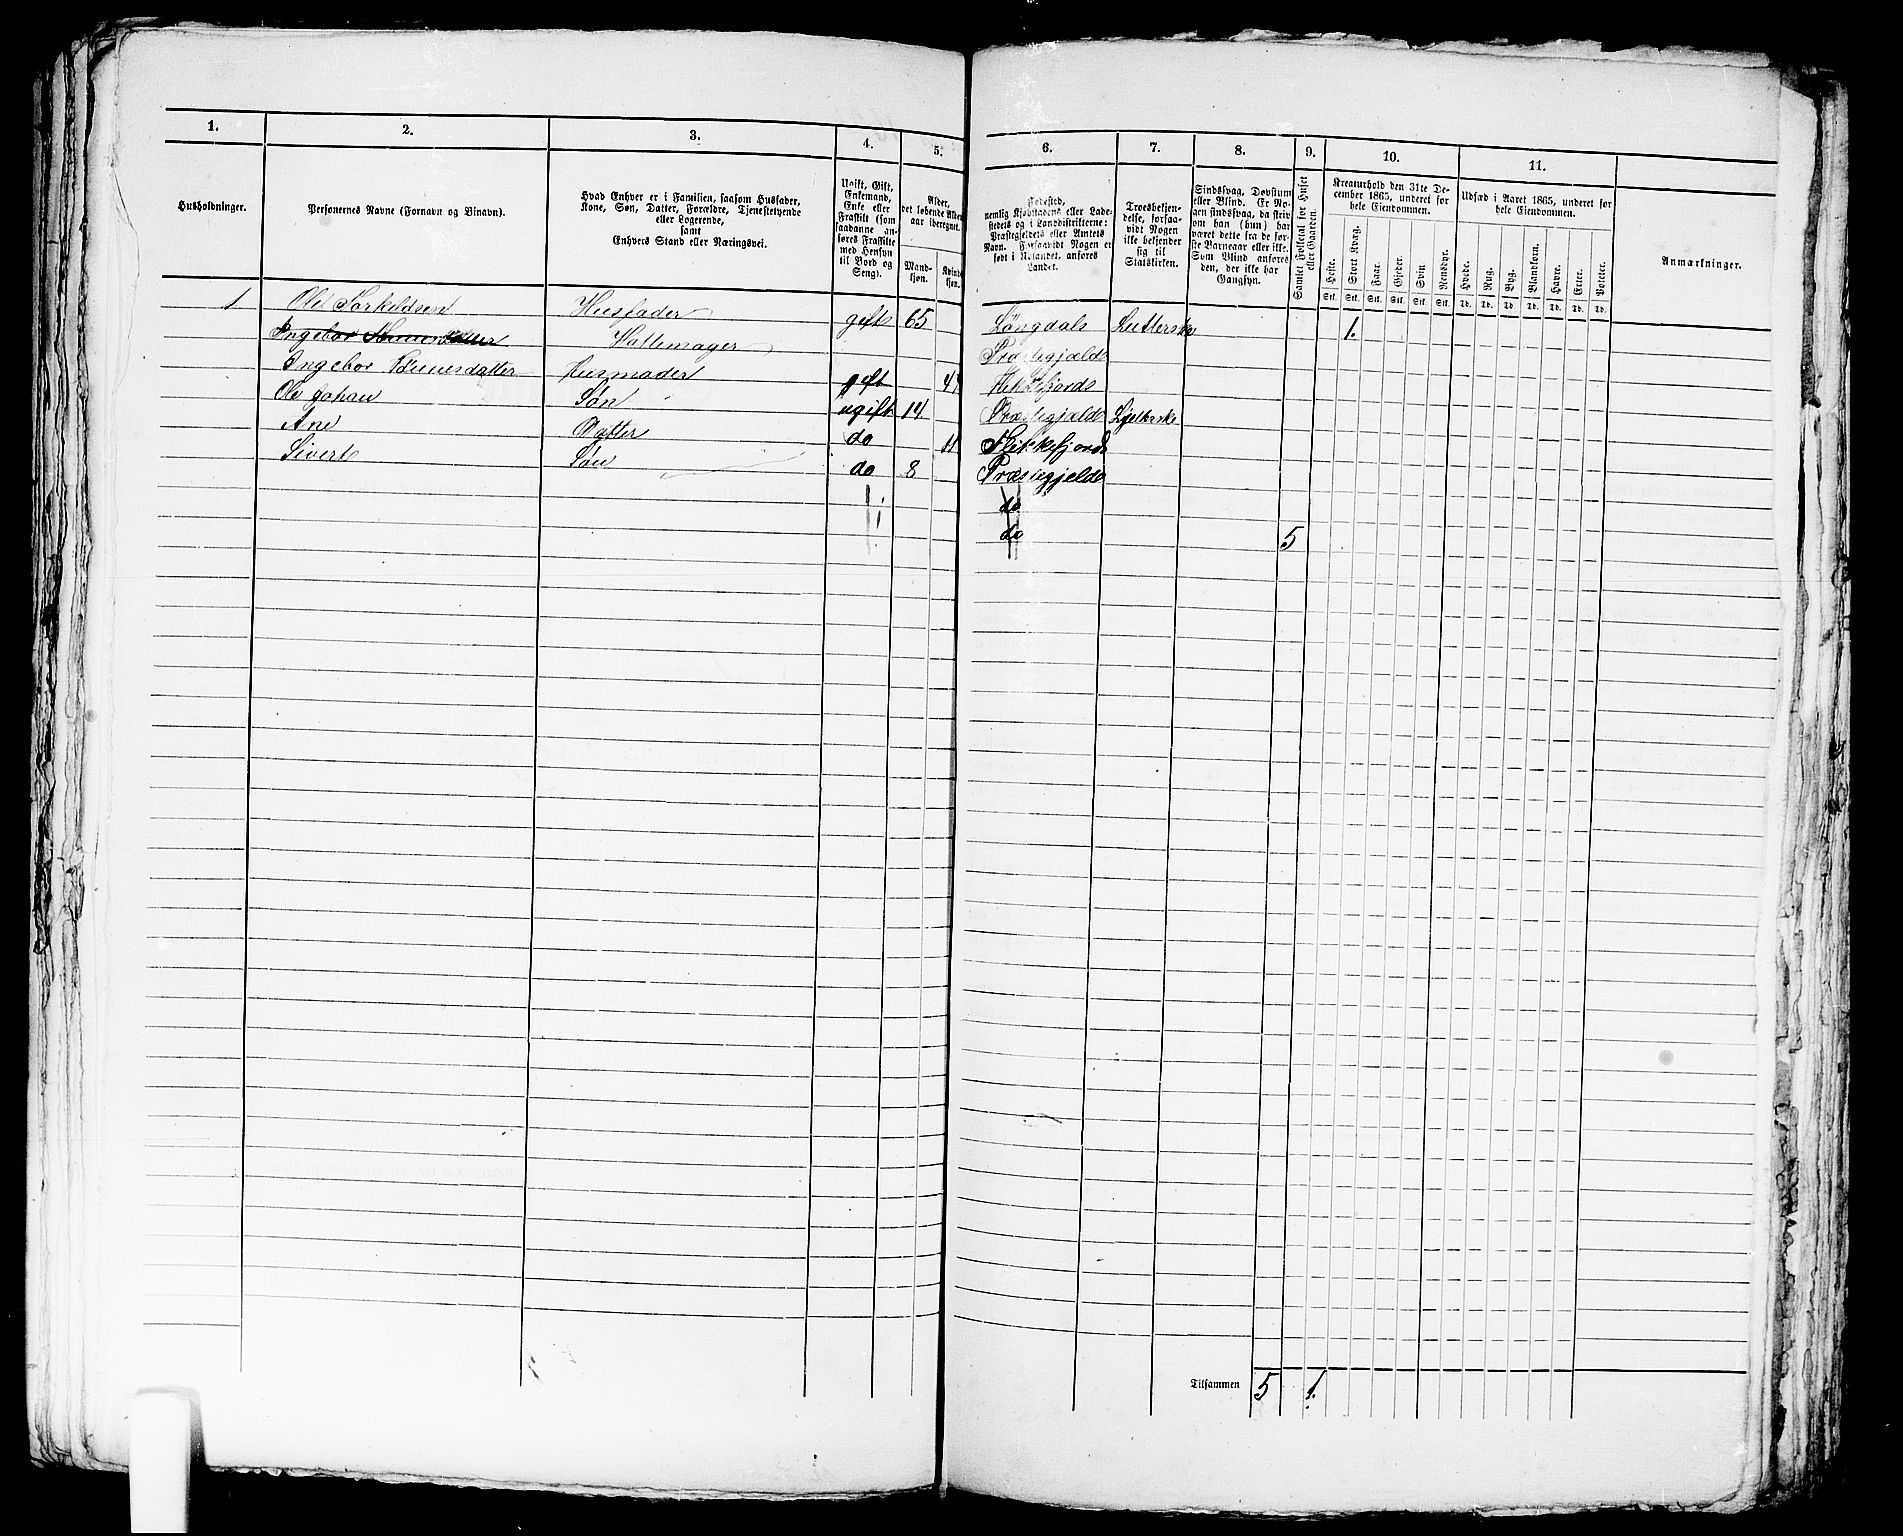 1. 2. 3. 4. 5. 6. 7. 8. 9. 10. 11.
Husholdninger.
Personernes Navne (Fornavn og Binavn).
Hvad Enhver er i Familien, saasom Husfader,
Kone, Søn, Datter, Forældre, Tjenestetyende
eller Logerende,
samt
Enhvers Stand eller Næringsvei.
Ugift, Gift,
Enkemand,
Enke eller
Fraskilt (som
saadanne an-
føres Fraskilte
med Hensyn
til Bord og
Seng).
Alder,
det løbende Alders-
aar iberegnet.
Mand-
kjøn.
Kvinde-
kjøn.
Fødested,
nemlig Kjøbstadens eller Lade-
stedets og i Landdistrikterne:
Præstegjeldets eller Amtets
Navn. Forsaavidt Nogen er
født i Udlandet, anføres
Landet.
Troesbekjen-
delse, forsaa-
vidt Nogen
ikke bekjender
sig til
Statskirken.
Sindssvag, Døvstum
eller Blind. Er No-
gen sindssvag, da skriv
om han (hun) har
været dette fra de før-
ste Barneaar eller ikke.
Som Blind anføres
den, der ikke har
Gangsyn.
Samlet Folketal for Huset
eller Gaarden.
Kreaturhold den 31te De-
cember 1865, underet for
hele Eiendommen.
Heste. Stort Kvæg. Faar. Gjeder. Svin. Rensdyr.
Stk. Stk. Stk. Stk. Stk. Stk.
Udsæd i Aaret 1865, underet for
hele Eiendommen.
Hvede. Rug. Byg. Blandkorn. Havre. Erter. Poteter.
Td. Td. Td. Td. Td. Td. Td.
Anmærkninger.
1 Ole Torkeldsen Husfader gift 65 Løngdals Lutterske 1.
Ingebor Hattemager Præstegjæld
Ingebor Tønnesdatter Husmoder gift 47 Flekkefjords
Ole Johan Søn ugift 14 Præstegjælds
Ane Datter do 11 Flekkefjords
Sivert Søn do 8 Præstegjelds
do
do 5
Tilsammen 5 1.